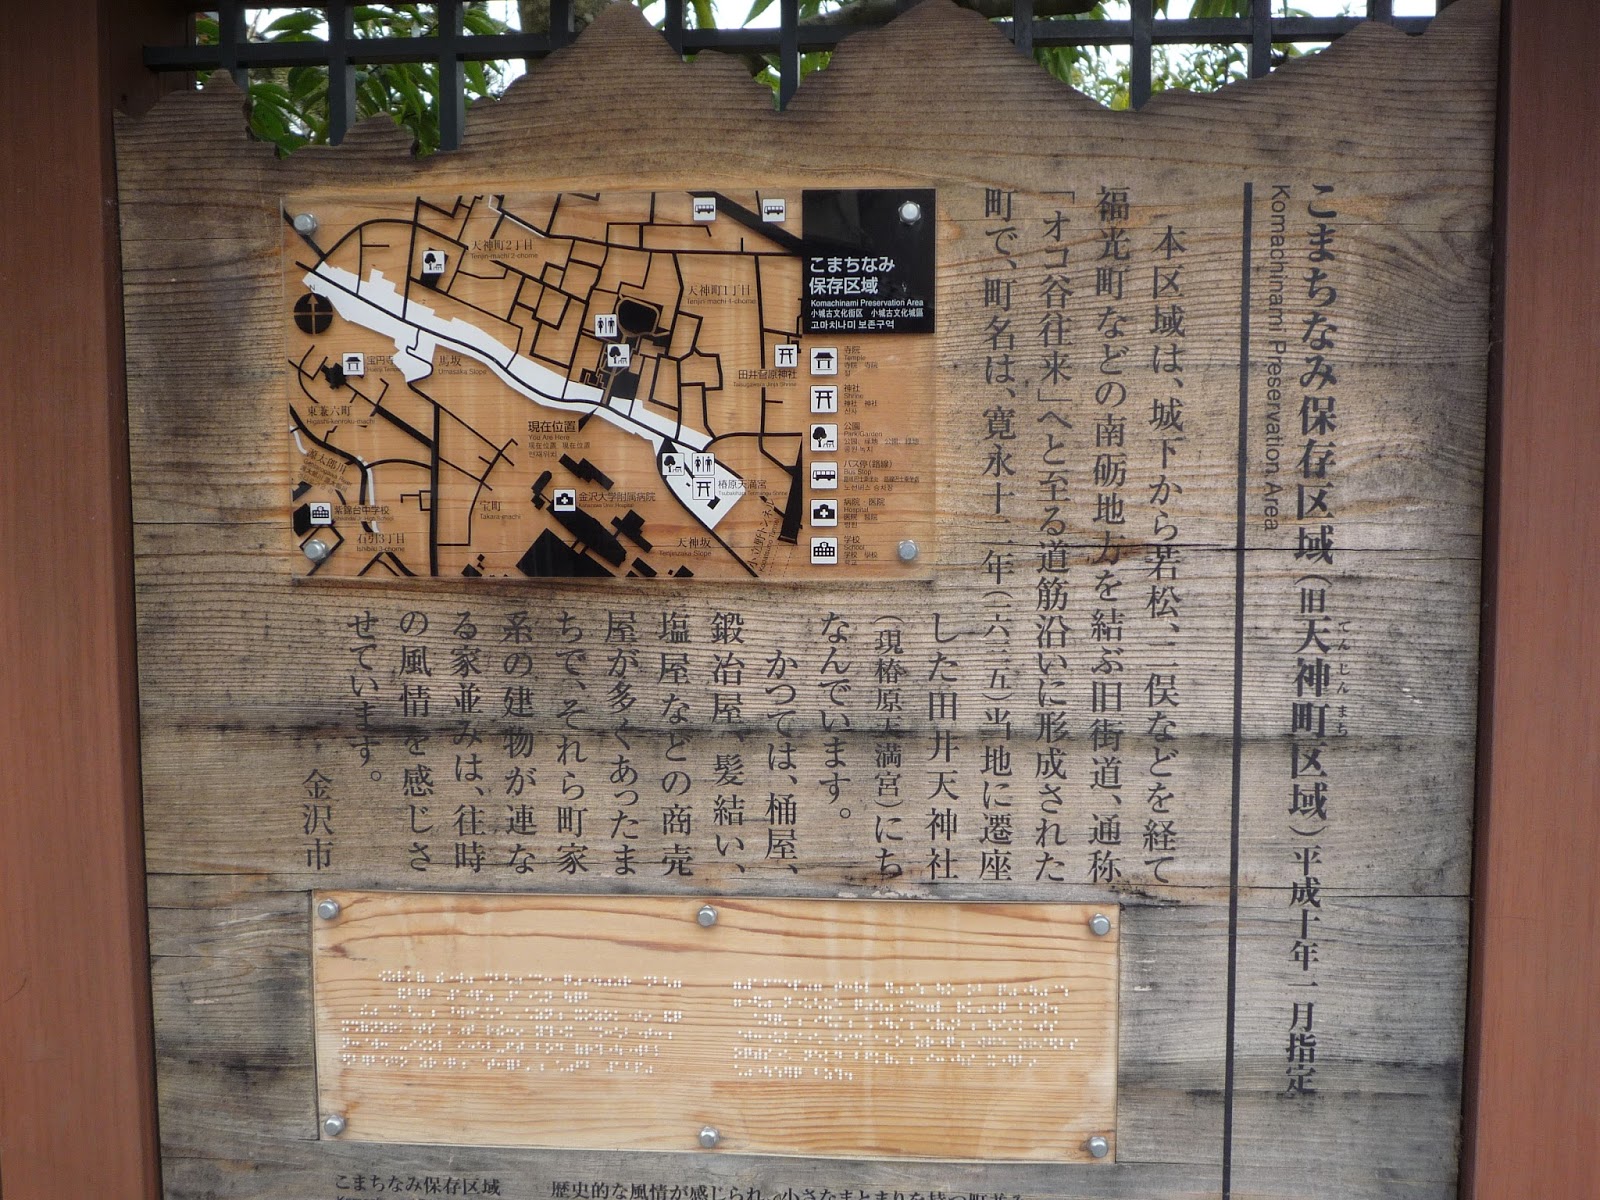 こまちなみ保存区域(旧天神町区域)平成十年一月指定
てんじんまち
Komachinami Preservation Area
本区域は、城下から若松、二俣などを経て
福光町などの南砺地方を結ぶ旧街道、通称
「オコ谷往来」へと至る道筋沿いに形成された
町で、町名は、寛永十二年(一六三五)当地に遷座
した田井天神社
(現椿原天満宮)にち
なんでいます。
かつては、桶屋、
鍛冶屋、髪結い、
塩屋などの商売
屋が多くあったま
ちで、それら町家
系の建物が連な
る家並みは、往時
の風情を感じさ
せています。
金沢市
こまちなみ
保存区域
Komachinami Preservation Area
小城古文化街区 小城古文化城區
고마치나미 보존구역
寺院
Temple
寺院 寺院
절
神社
Shrine
神社 神社
신사
公園
Park/Garden
バス停(路線)
Bus Stop
病院・医院
Hospital
병원
学校
School
学校 學校
학교
天神町2丁目
Tenjin-machi 2-chome
天神町1丁目
Tenjin-machi 1-chome
N
宝円寺
馬坂
Umasaka Slope
田井菅原神社
東兼六町
Higashi-kenroku-machi
現在位置
You Are Here
現在位置 現在位置
현재위치
源太郎川
椿原天満宮
宝町
Takara-machi
金沢大学附属病院
紫錦台中学校
石引3丁目
Ishibiki 3-chome
天神坂
Tenjinzaka Slope
小立野トンネル
こまちなみ保存区域
歴史的な風情が感じられ、小さなまとまりを持つ町並み